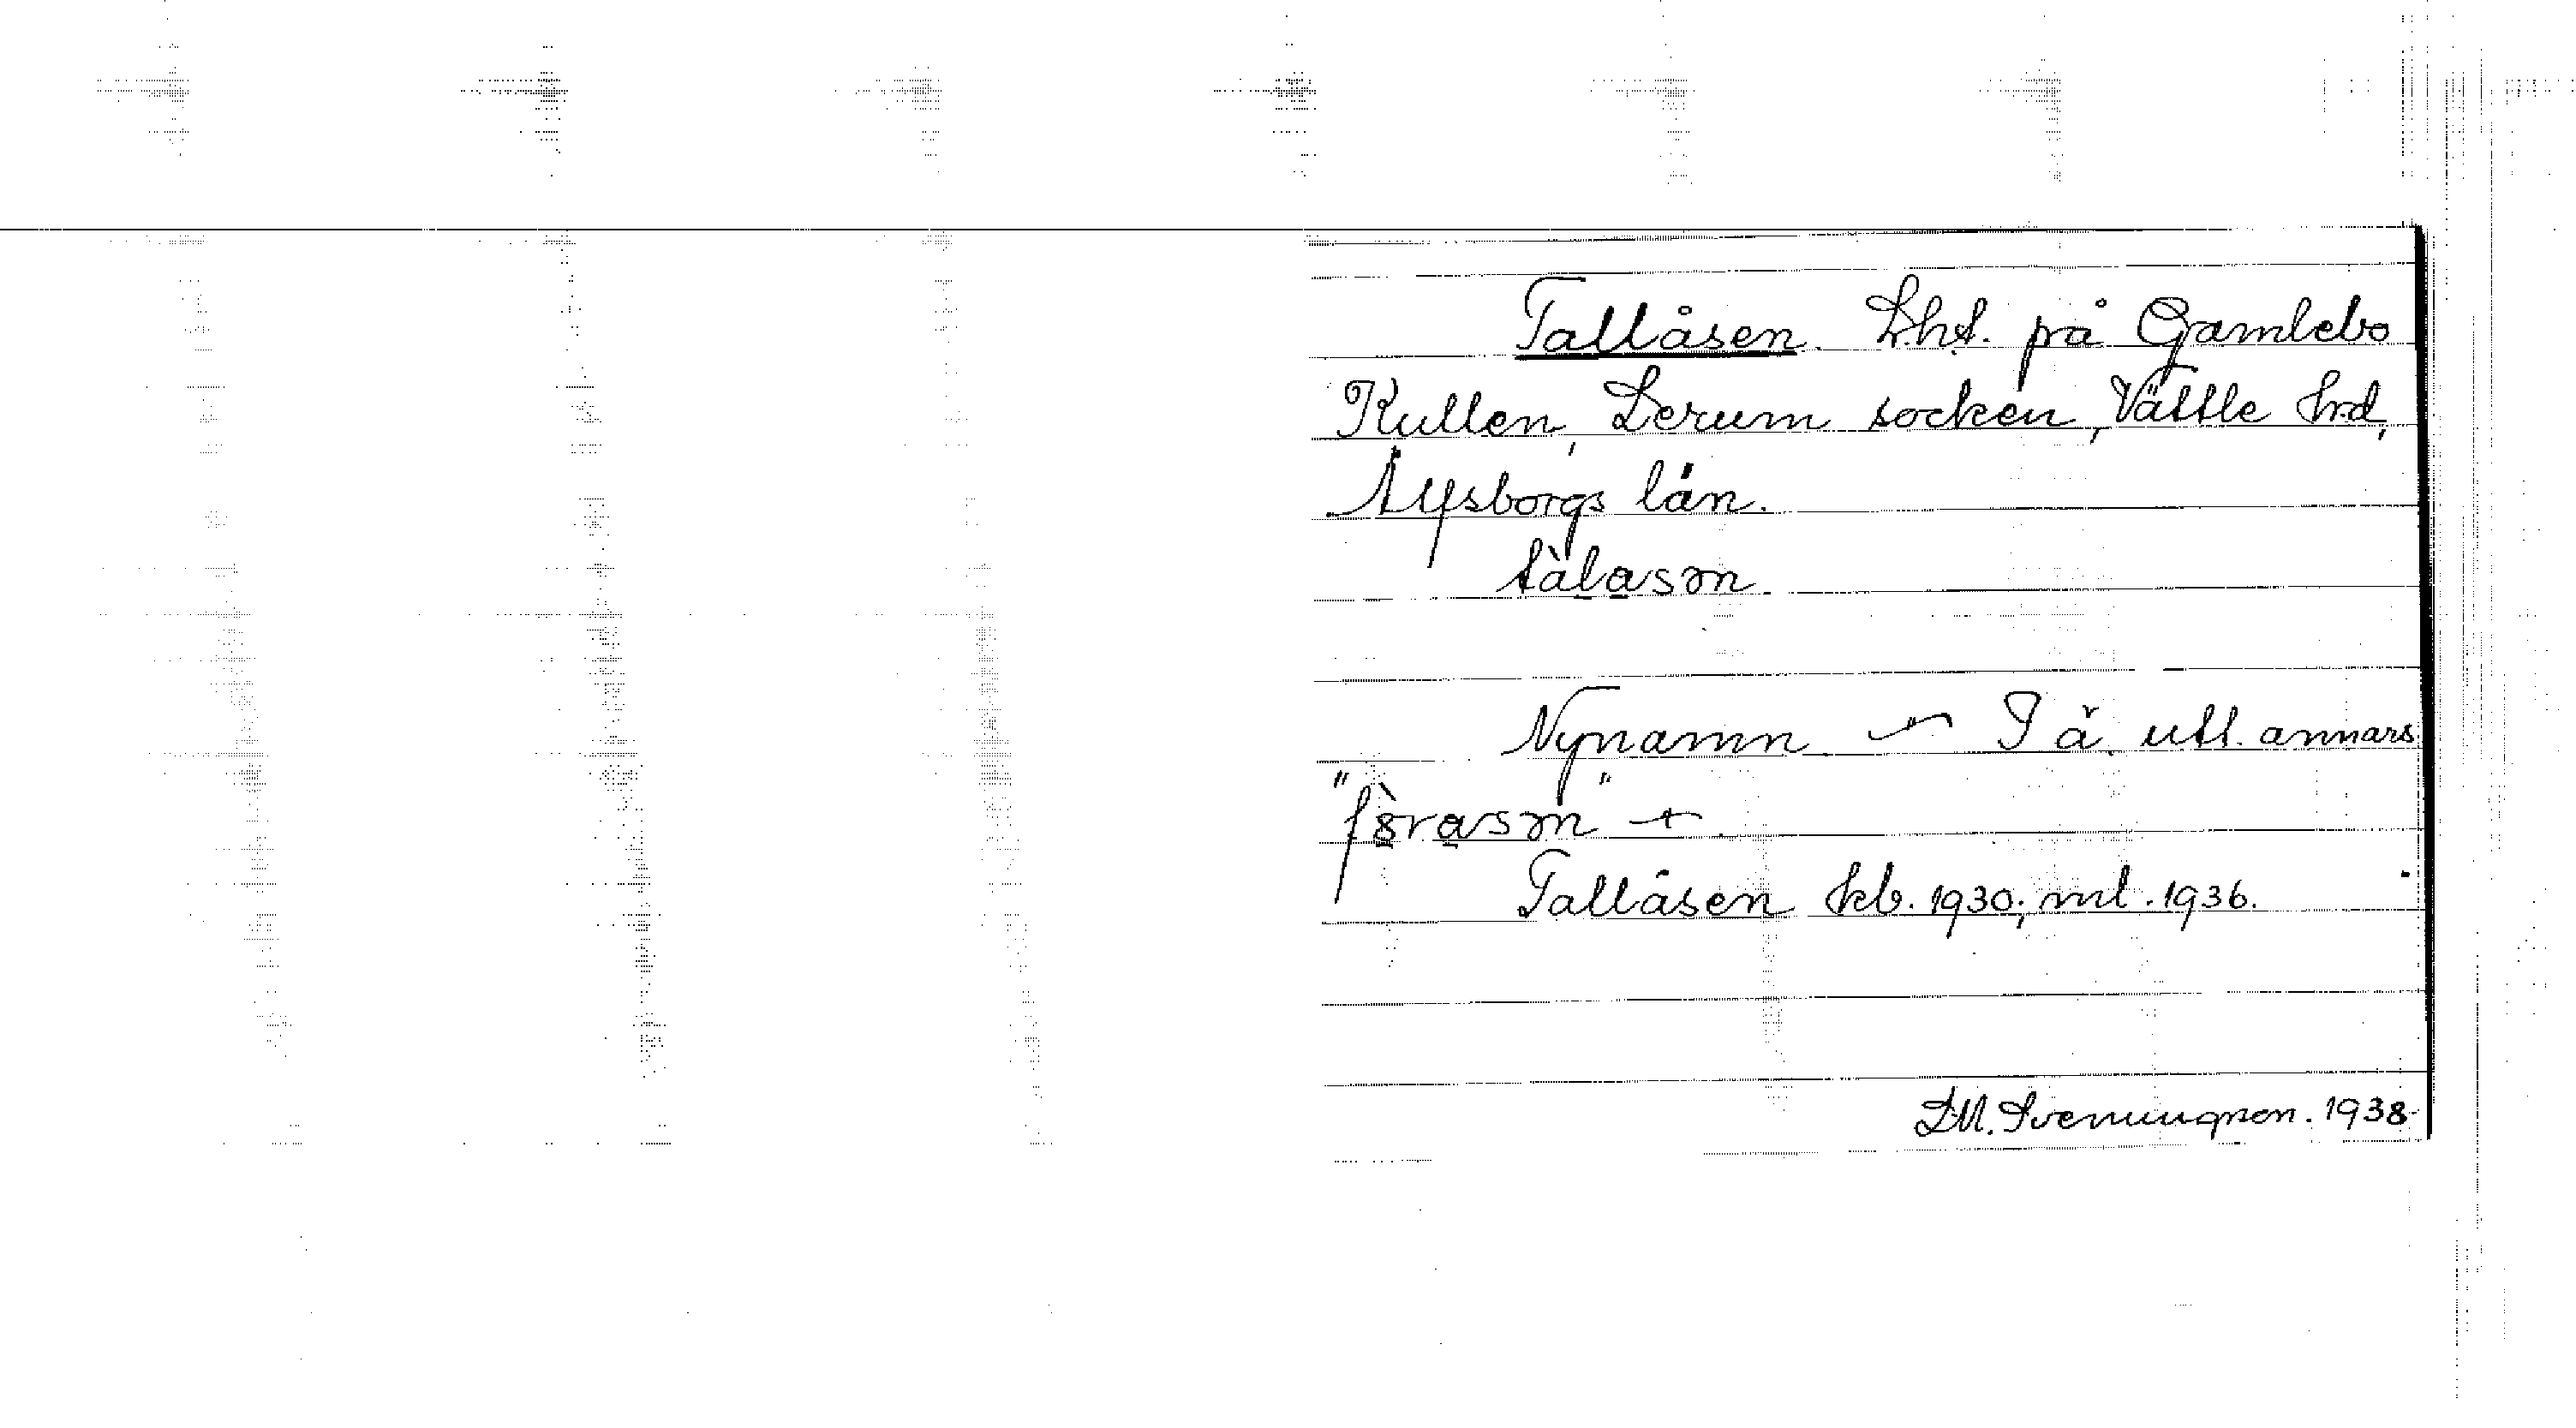 Tallåsen. Lht. på Gamlebo
Kullen, Lerum socken, Vättle hrd,
Älvsborgs län.
tàlasən
Nynamn — I ä. utt. annars
"fɷ̀rasən" +.
Tallåsen kb. 1930; ml. 1936.
S.M. Svenungson. 1938